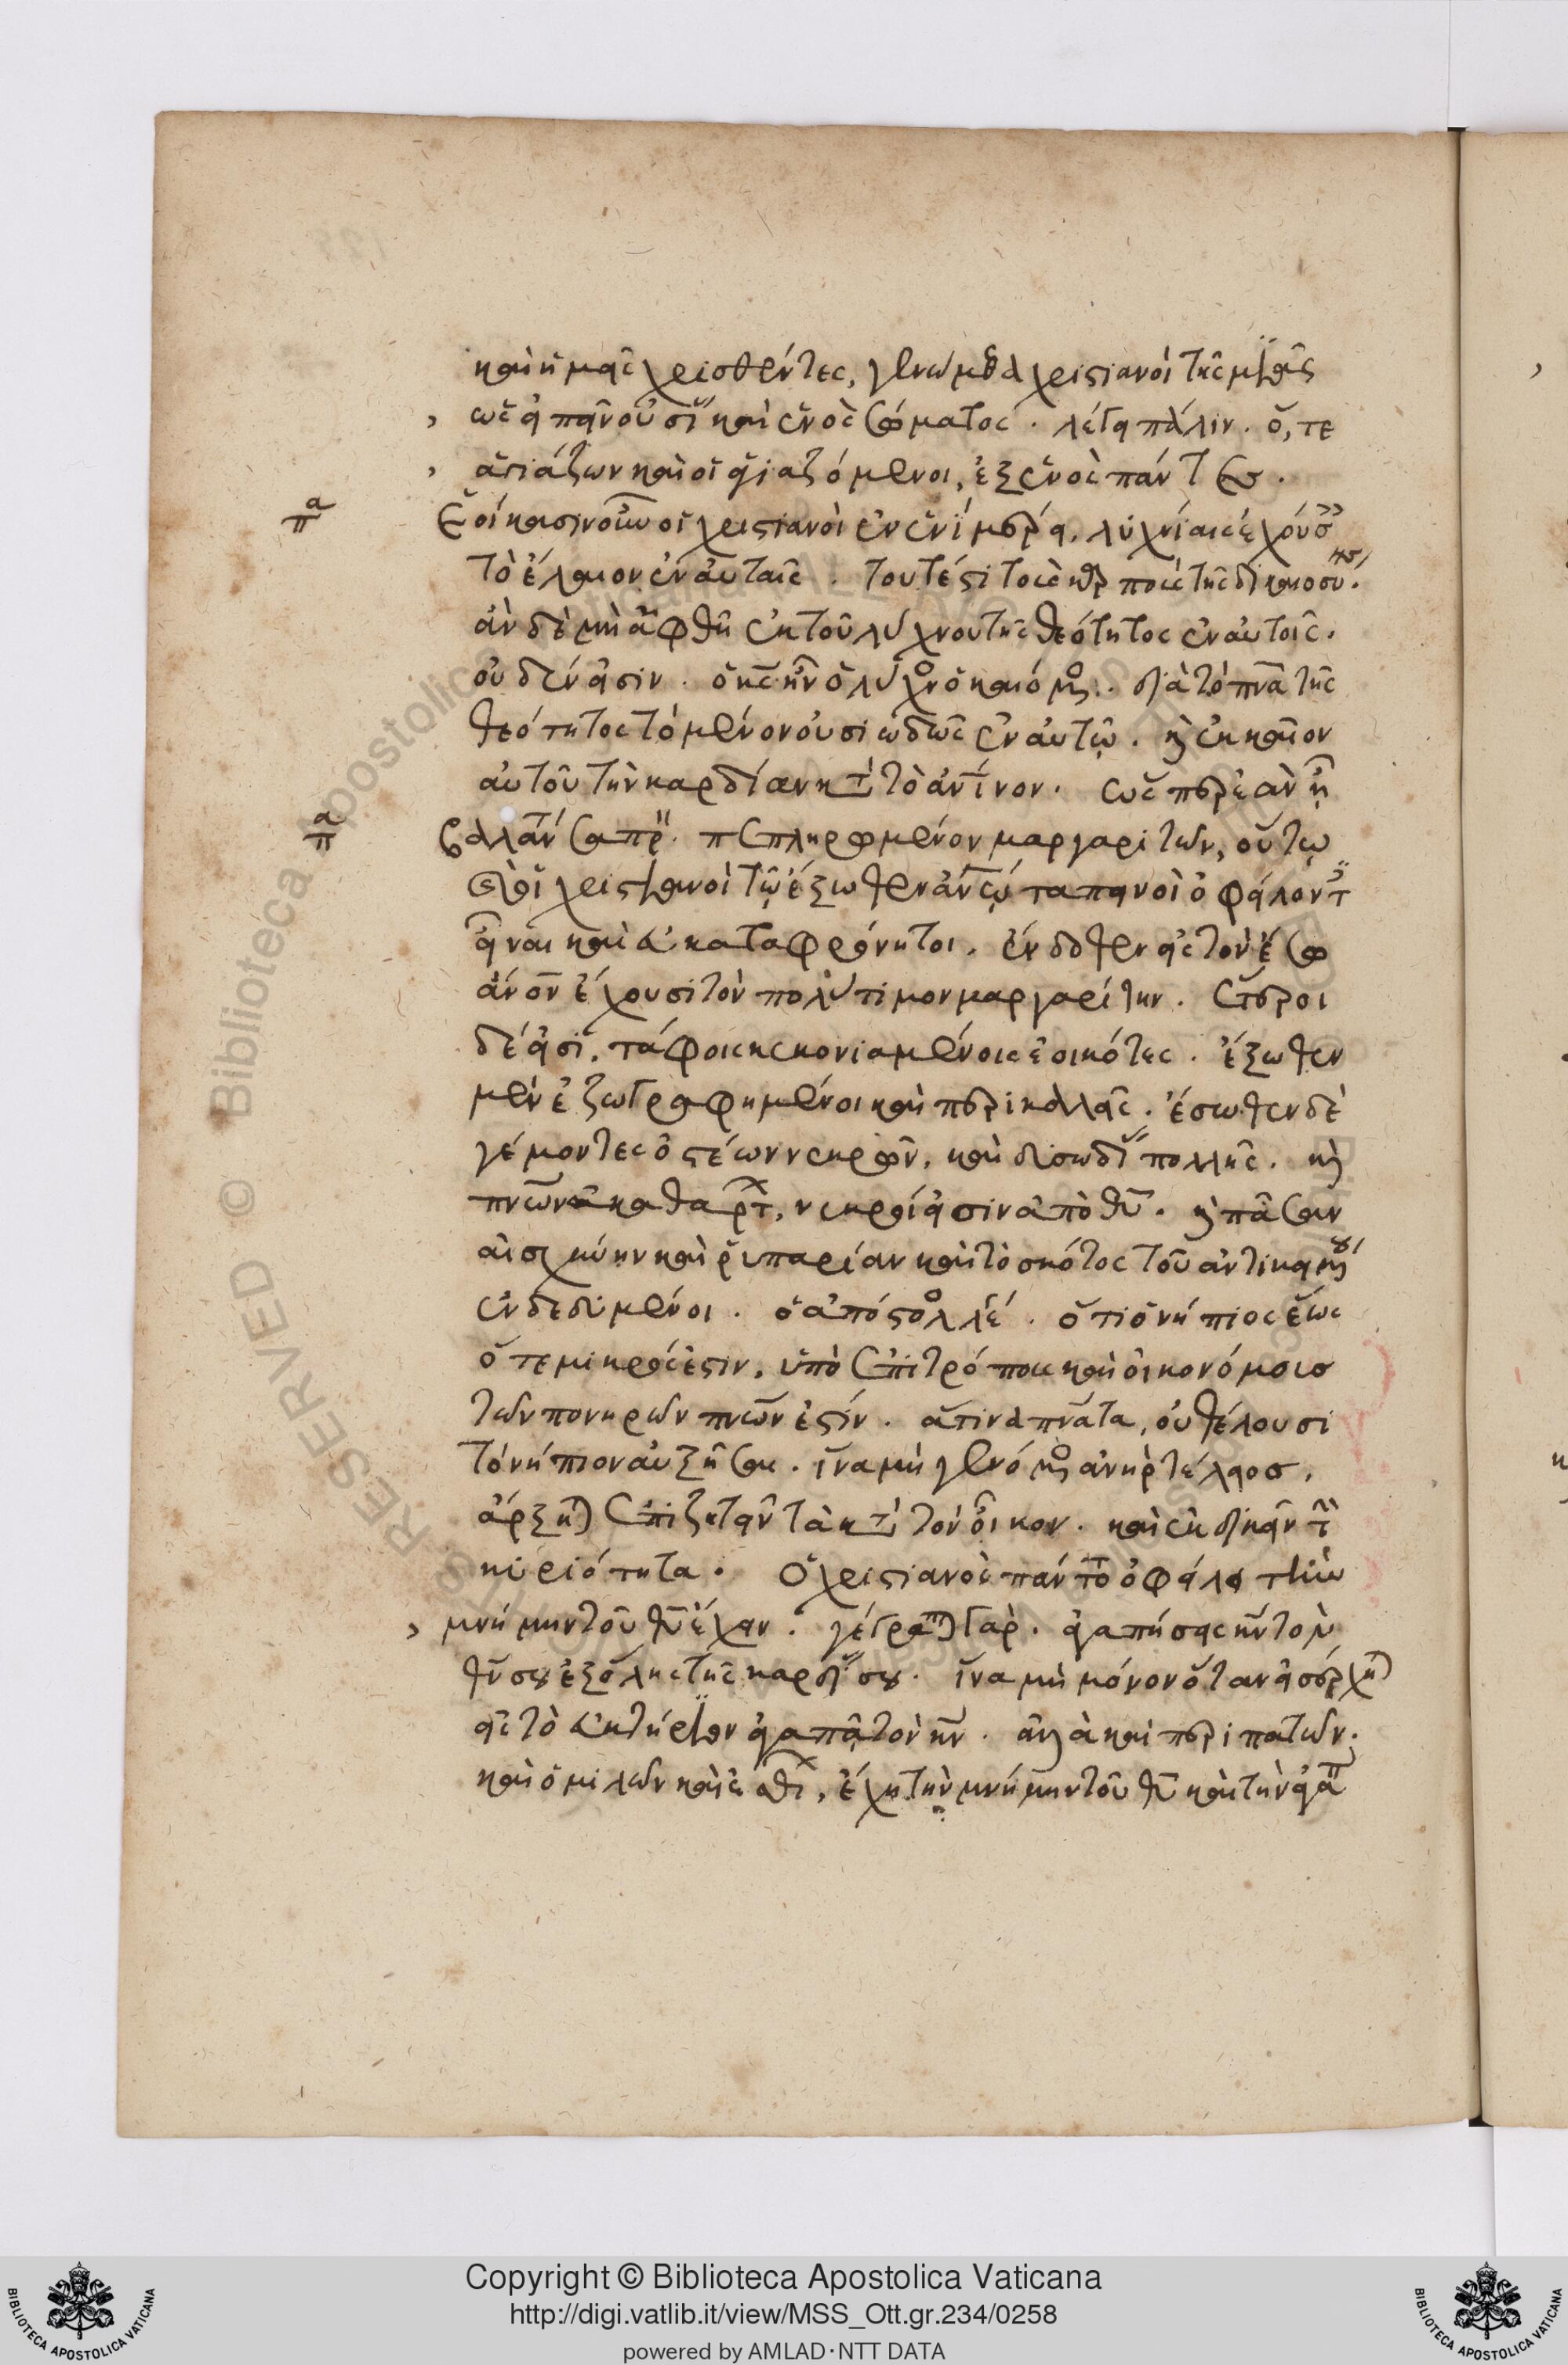 καὶ ἡμεῖς χρισθέντες, γενώμεθα χριστιανοὶ τῆς μιᾶς
ὡς εἰπεῖν οὐσί καὶ ἑνὸς σώματος. λέγει πάλιν. ὅ, τε
ἁγιάζων καὶ οἱ ἁγιαζόμενοι, ἐξ ἑνὸς πάντες.
πα
Ἐοίκασιν οὖν οἱ χριστιανοὶ ἐν ἑνὶ μέρει, λυχνίαις ἐχούσ
τὸ ἔλαιον ἐν αὐταῖς. τουτέστι τοὺς καρποὺς τῆς δικαιοσύνης.
ἂν δὲ μὴ ἀφθῆ ἐκ τοῦ λύχνου τῆς θεότητος ἐν αὐτοῖς.
οὐδέν εἰσιν. ὁ κς ἦν ὁ λύχνος ὁ καιόμενος. διὰ τὸ πνα τῆς
θεότητος τὸ μένον οὐσιωδῶς ἐν αὐτῷ. καὶ ἐκκαῖον
αὐτοῦ τὴν καρδίαν κατὰ τὸ ἀνινον. ὥσπερ ἐὰν ᾖ
πα
βαλλάν σαπρ. πεπληρωμένον μαργαριτῶν, οὕτω
καὶ οἱ χριστιανοὶ τῷ ἔξωθεν ἀνω ταπεινοὶ ὀφείλοντ
εἶναι καὶ ἀκαταφρόνητοι. ἔνδοθεν εἰς τὸν ἔσω
ἀνον ἔχουσι τὸν πολύτιμον μαργαρίτην. ἕτεροι
δέ εἰσι, τάφοις κεκονιαμένοις ἐοικότες. ἔξωθεν
μὲν ἐζωγραφημένοι καὶ περικαλλεῖς. ἔσωθεν δὲ
γέμοντες ὀστέων νεκρῶν, καὶ δυσωδί πολλῆς. καὶ
πνων ἀκαθάρτ, νεκροί εἰσιν ἀπὸ θυ. καὶ πᾶσαν
αἰσχύνην καὶ ῥυπαρίαν καὶ τὸ σκότος τοῦ ἀντικειμένου
ἐνδεδυμένοι. ὁ ἀπόστολος λέγει. ὅτι ὁ νήπιος ἕως
ὅτε μικρός ἐστιν, ὑπὸ ἐπιτρόποις καὶ οἰκονόμοισ
τῶν πονηρῶν πνων ἐστίν. ἅτινα πνατα, οὐ θέλουσι
τὸ νήπιον αὐξῆσαι. ἵνα μὴ γενόμενος ἀνὴρ τέλειοσ,
ἄρξηται ἐπιζητεῖν τὰ κατὰ τὸν οἶκον. καὶ ἐκδικεῖν τὴν
κυριότητα. Ὁ χριστιανὸς πάντοτε ὀφείλει τὴν
μνήμην τοῦ θυ ἔχειν. γέγραπται γάρ. ἀγαπήσεις κν τὸν
θν σου ἐξ ὅλης τῆς καρδί σου. ἵνα μὴ μόνον ὅταν εἰσέρχηται
εἰς τὸ εὐκτήριον ἀγαπᾷ τὸν κν. ἀλλὰ καὶ περιπατῶν.
καὶ ὁμιλῶν καὶ ἐσθί, ἔχῃ τὴν μνήμην τοῦ θυ καὶ τὴν ἀγάπ
Copyright © Biblioteca Apostolica Vaticana
http://digi.vatlib.it/view/MSS_Ott.gr.234/0258
powered by AMLAD·NTT DATA